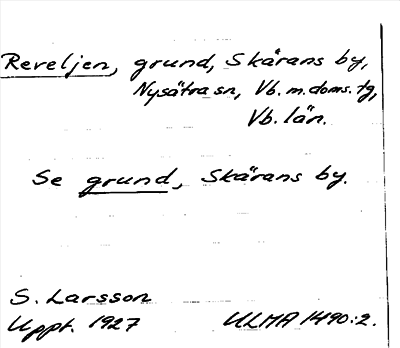 Reveljen, grund, Skärans by,
Nysätra sn, Vb. m. doms. tg,
Vb. län.
Se grund, Skärans by.
S. Larsson
Uppt. 1927 ULMA 1490:2.